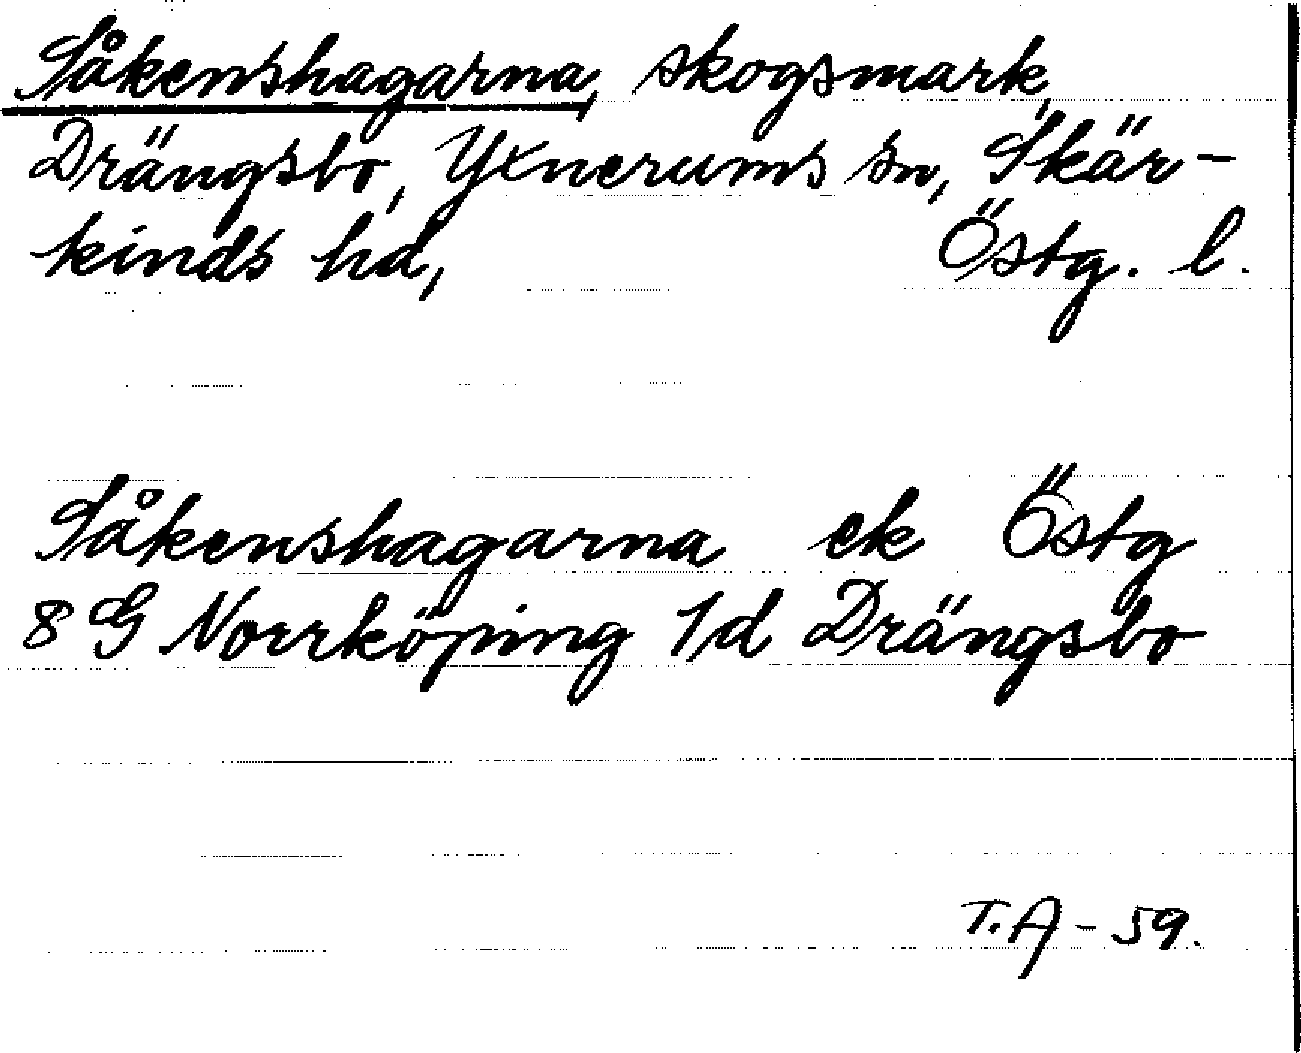 Såkenshagarna, skogsmark,
Drängsbo, Yxnerums sn, Skär-
kinds hd, Östg. l.
Såkenshagarna ek Östg
8 G Norrköping 1d Drängsbo
T.A - 59.